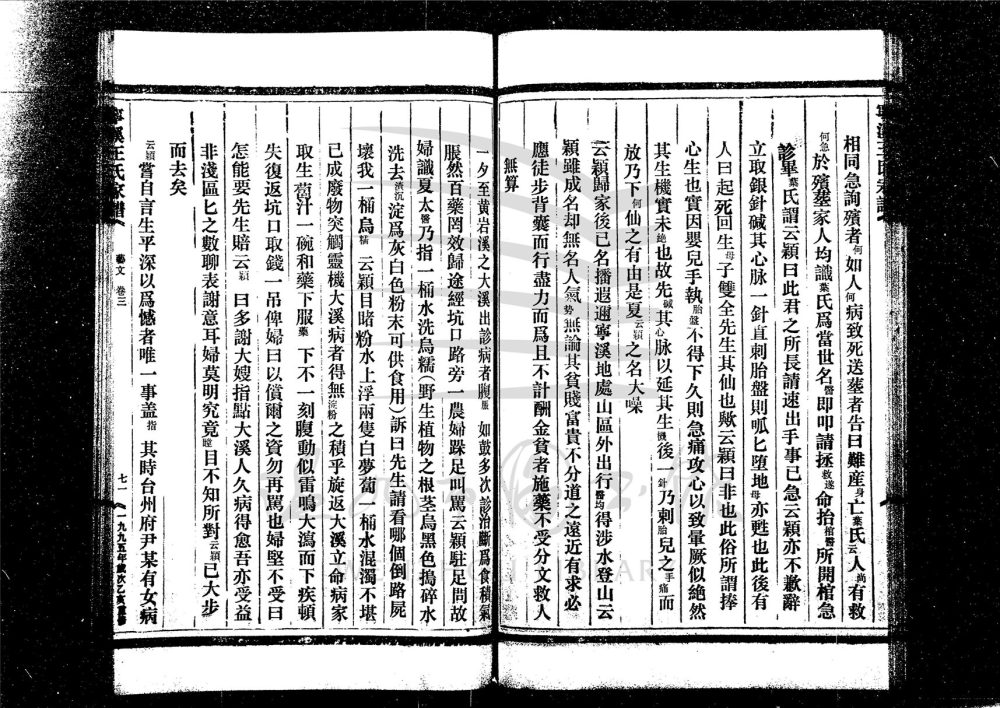 相同急詢殯者何如人何病致死送塟者告曰難産身亡葉氏云人尚有救
何急於殯塟家人均識葉氏爲當世名醫即叩請拯救遂命抬棺醫所開棺急
診畢葉氏謂云穎曰此君之所長請速出手事已急云穎亦不歉辭
立取銀針碱其心脉一針直刺胎盤則呱匕堕地母亦甦也此後有
人曰起死回生母子雙全先生其仙也歟云穎曰非也此俗所謂捧
心生也實因嬰兒手執胎盤不得下久則急痛攻心以致暈厥似絶然
其生機實未絶也故先碱其心脉以延其生機後一針乃刺胎兒之手痛而
放乃下何仙之有由是夏云穎之名大噪
云穎歸家後已名播遐邇寧溪地處山區外出行醫均得涉水登山云
穎雖成名却無名人氣勢無論其貧賤富貴不分道之遠近有求必
應徒步背囊而行盡力而爲且不計酬金貧者施藥不受分文救人
無算
一夕至黄岩溪之大溪出診病者腹脹如鼓多次診治斷爲食積氣
脹然百藥罔效歸途經坑口路旁一農婦跺足叫罵云穎駐足問故
婦識夏太醫乃指一桶水洗烏糯(野生植物之根茎烏黑色搗碎水
洗去濱沉淀爲灰白色粉末可供食用)訴曰先生請看哪個倒路屍
壞我一桶烏糯云穎目睹粉水上浮兩隻白夢蔔一桶水混濁不堪
已成廢物突觸靈機大溪病者得無淀粉之積乎旋返大溪立命病家
取生蔔汁一碗和藥下服藥下不一刻腹動似雷鳴大瀉而下疾頓
失復返坑口取錢一吊俾婦曰以償爾之資勿再罵也婦堅不受曰
怎能要先生賠云穎曰多謝大嫂指點大溪人久病得愈吾亦受益
非淺區匕之數聊表謝意耳婦莫明究竟瞠目不知所對云穎已大步
而去矣
云穎嘗自言生平深以爲憾者唯一事盖指其時台州府尹某有女病
寧溪王氏家譜
藝文 卷三
七一
一九九五年歲次乙亥重修